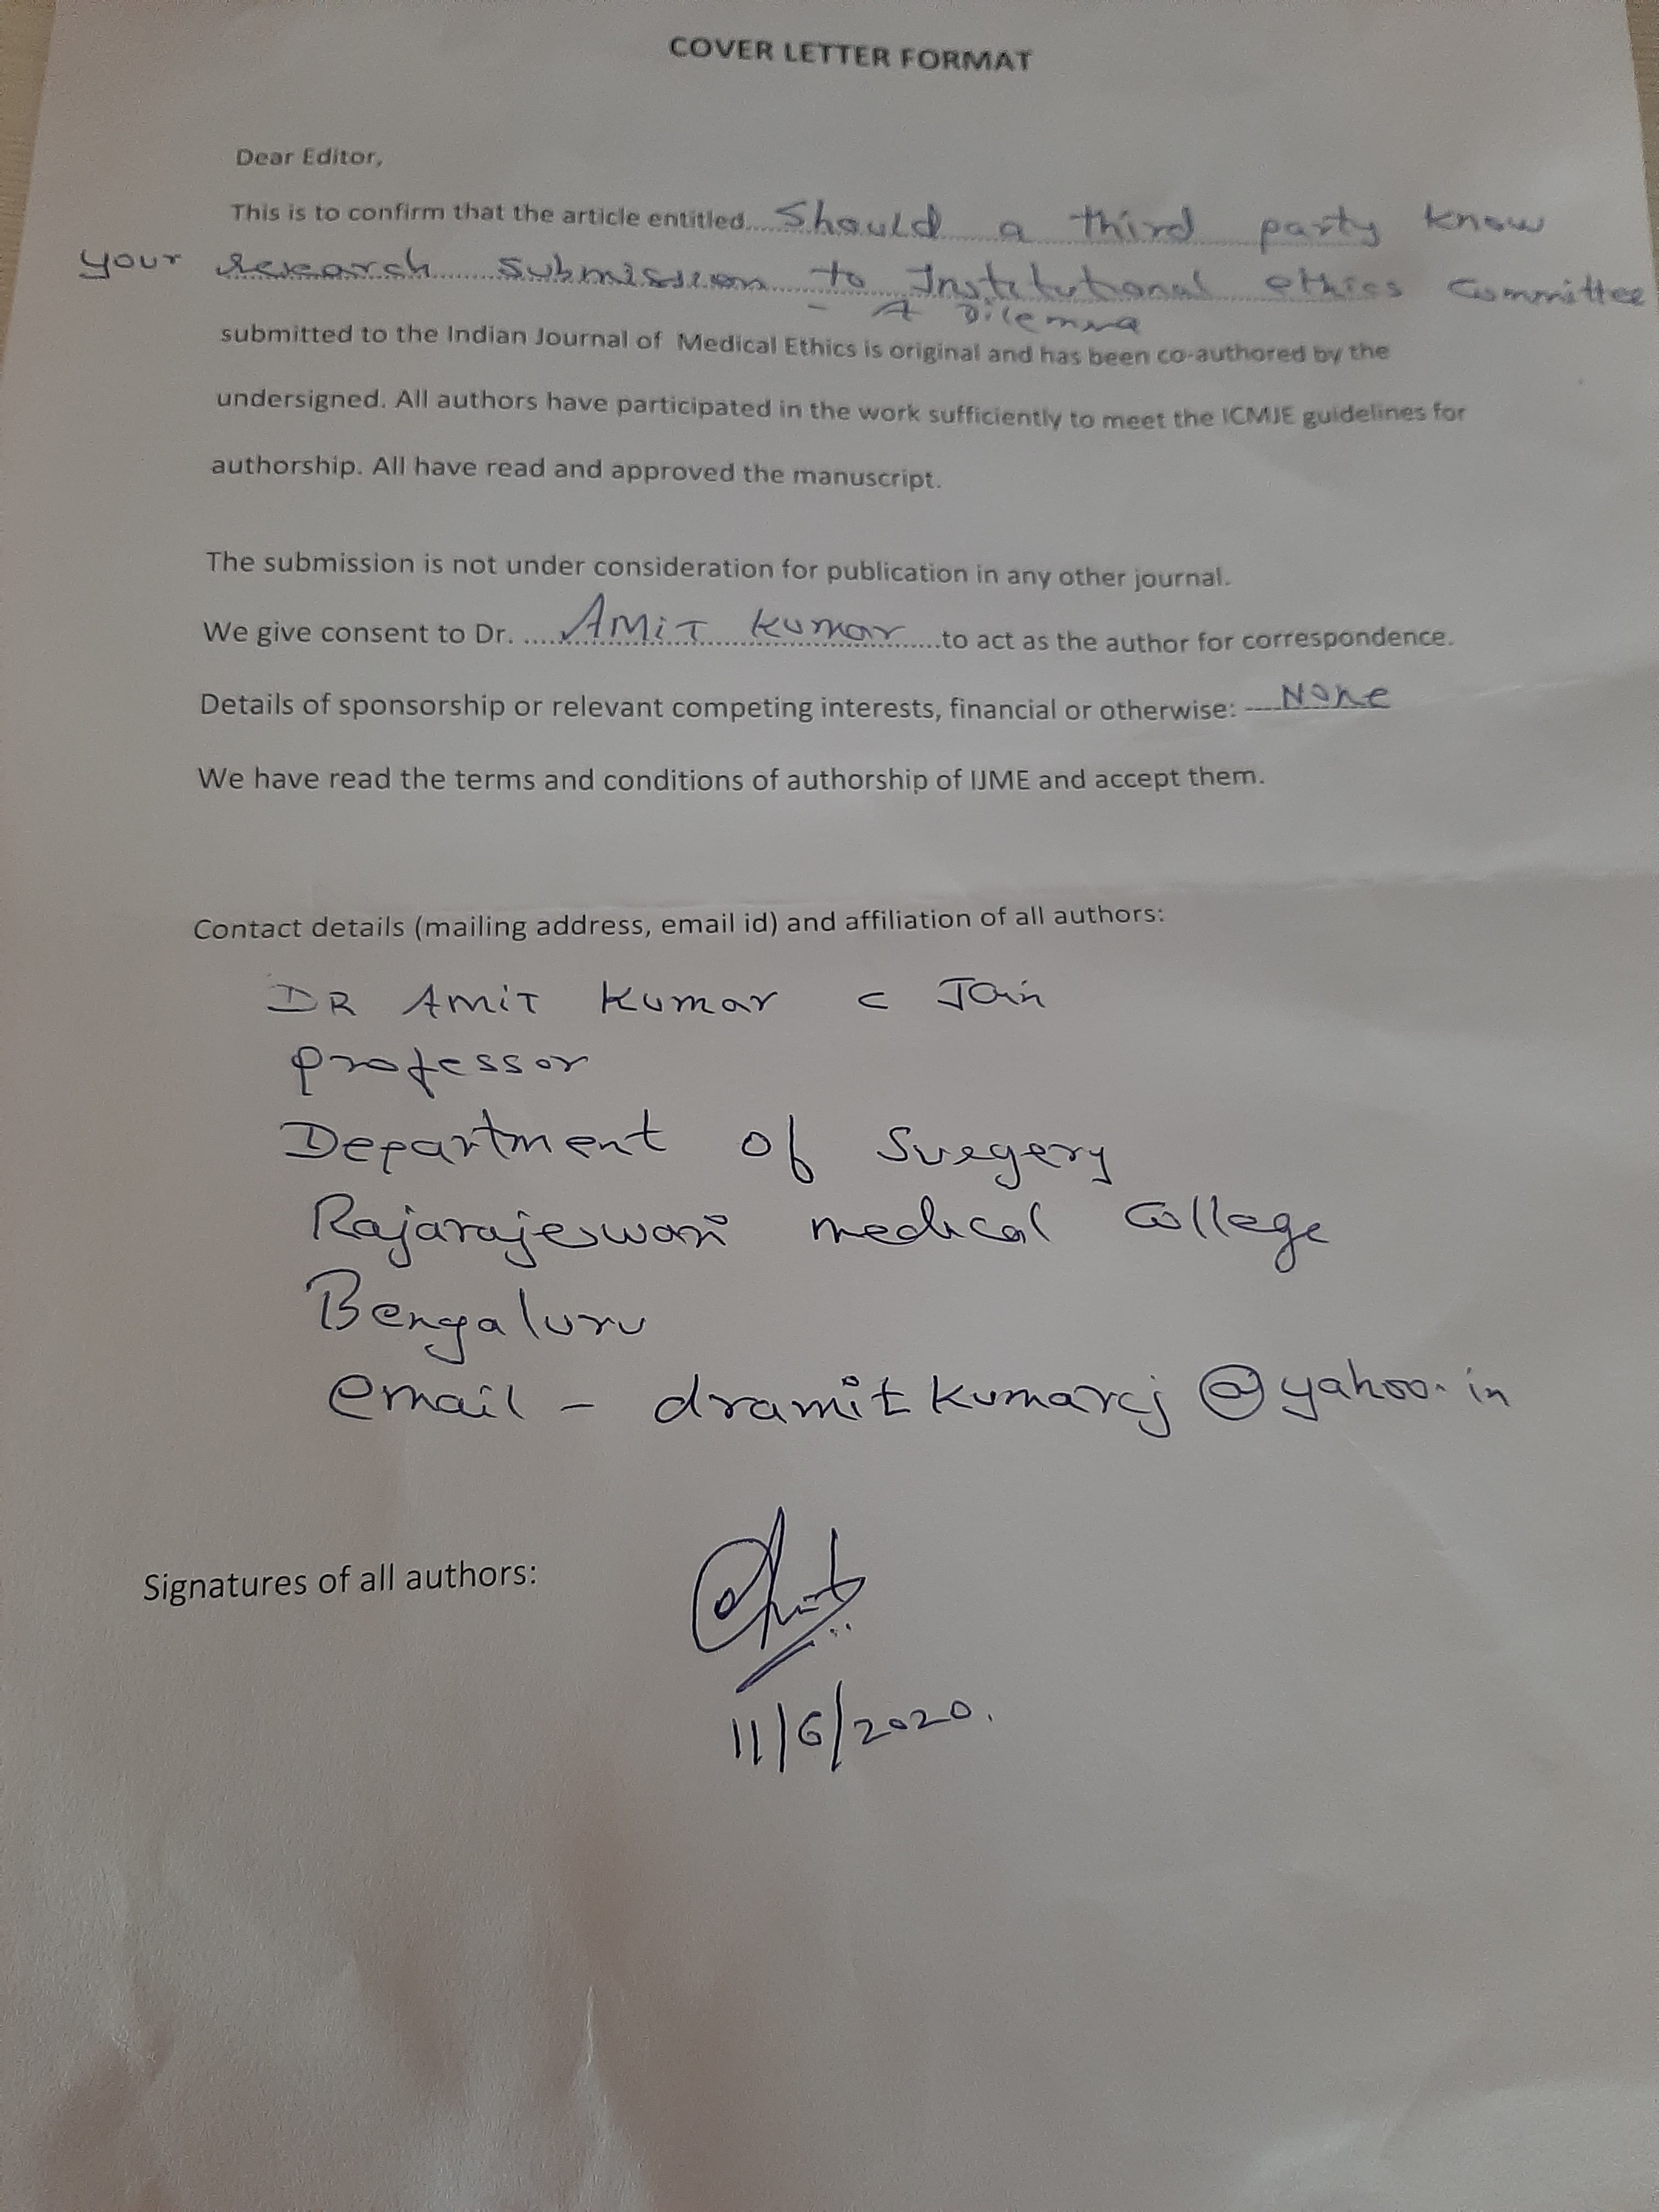 COVER LETTER FORMAT
Dear Editor,
This is to confirm that the article entitled.... Should a third party know
your research submission to Institutional ethics Committee
- A Dilemma
submitted to the Indian Journal of Medical Ethics is original and has been co-authored by the
undersigned. All authors have participated in the work sufficiently to meet the ICMJE guidelines for
authorship. All have read and approved the manuscript.
The submission is not under consideration for publication in any other journal.
We give consent to Dr. .....Amit Kumar.....to act as the author for correspondence.
Details of sponsorship or relevant competing interests, financial or otherwise: None
We have read the terms and conditions of authorship of IJME and accept them.
Contact details (mailing address, email id) and affiliation of all authors:
DR AMIT Kumar C Jain
professor
Department of Surgery
Rajarajeswari medical College
Bengaluru
email - dramitkumarcj@yahoo.in
Signatures of all authors:
11/6/2020.